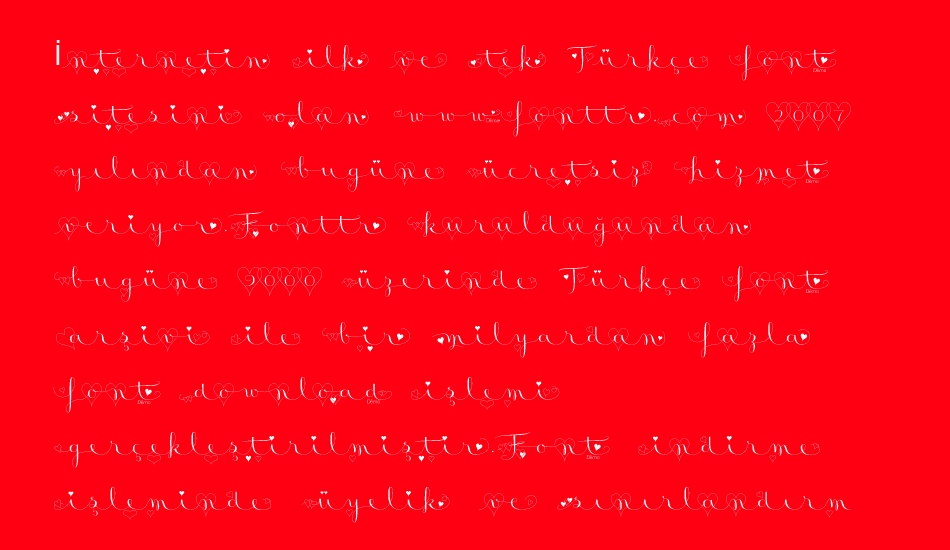 İnternetin ilk ve tek Türkçe font
sitesini olan www.fonttr.com 2007
yılından bugüne ücretsiz hizmet
veriyor.Fonttr kurulduğundan
bugüne 9000 üzerinde Türkçe font
arşivi ile bir milyardan fazla
font download işlemi
gerçekleştirilmiştir.Font indirme
işleminde üyelik ve sınırlandırm